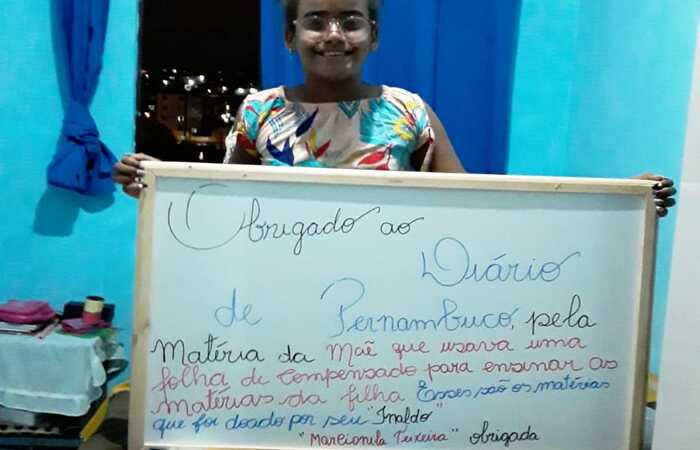 Obrigado ao
Diário
de Pernambuco, pela
Matéria da Mãe que usava uma
folha de Compensado para ensinar as
Matérias da filha Esses são os matérias
que foi doado por seu "Inaldo"
"Marcionila Teixeira" obrigada